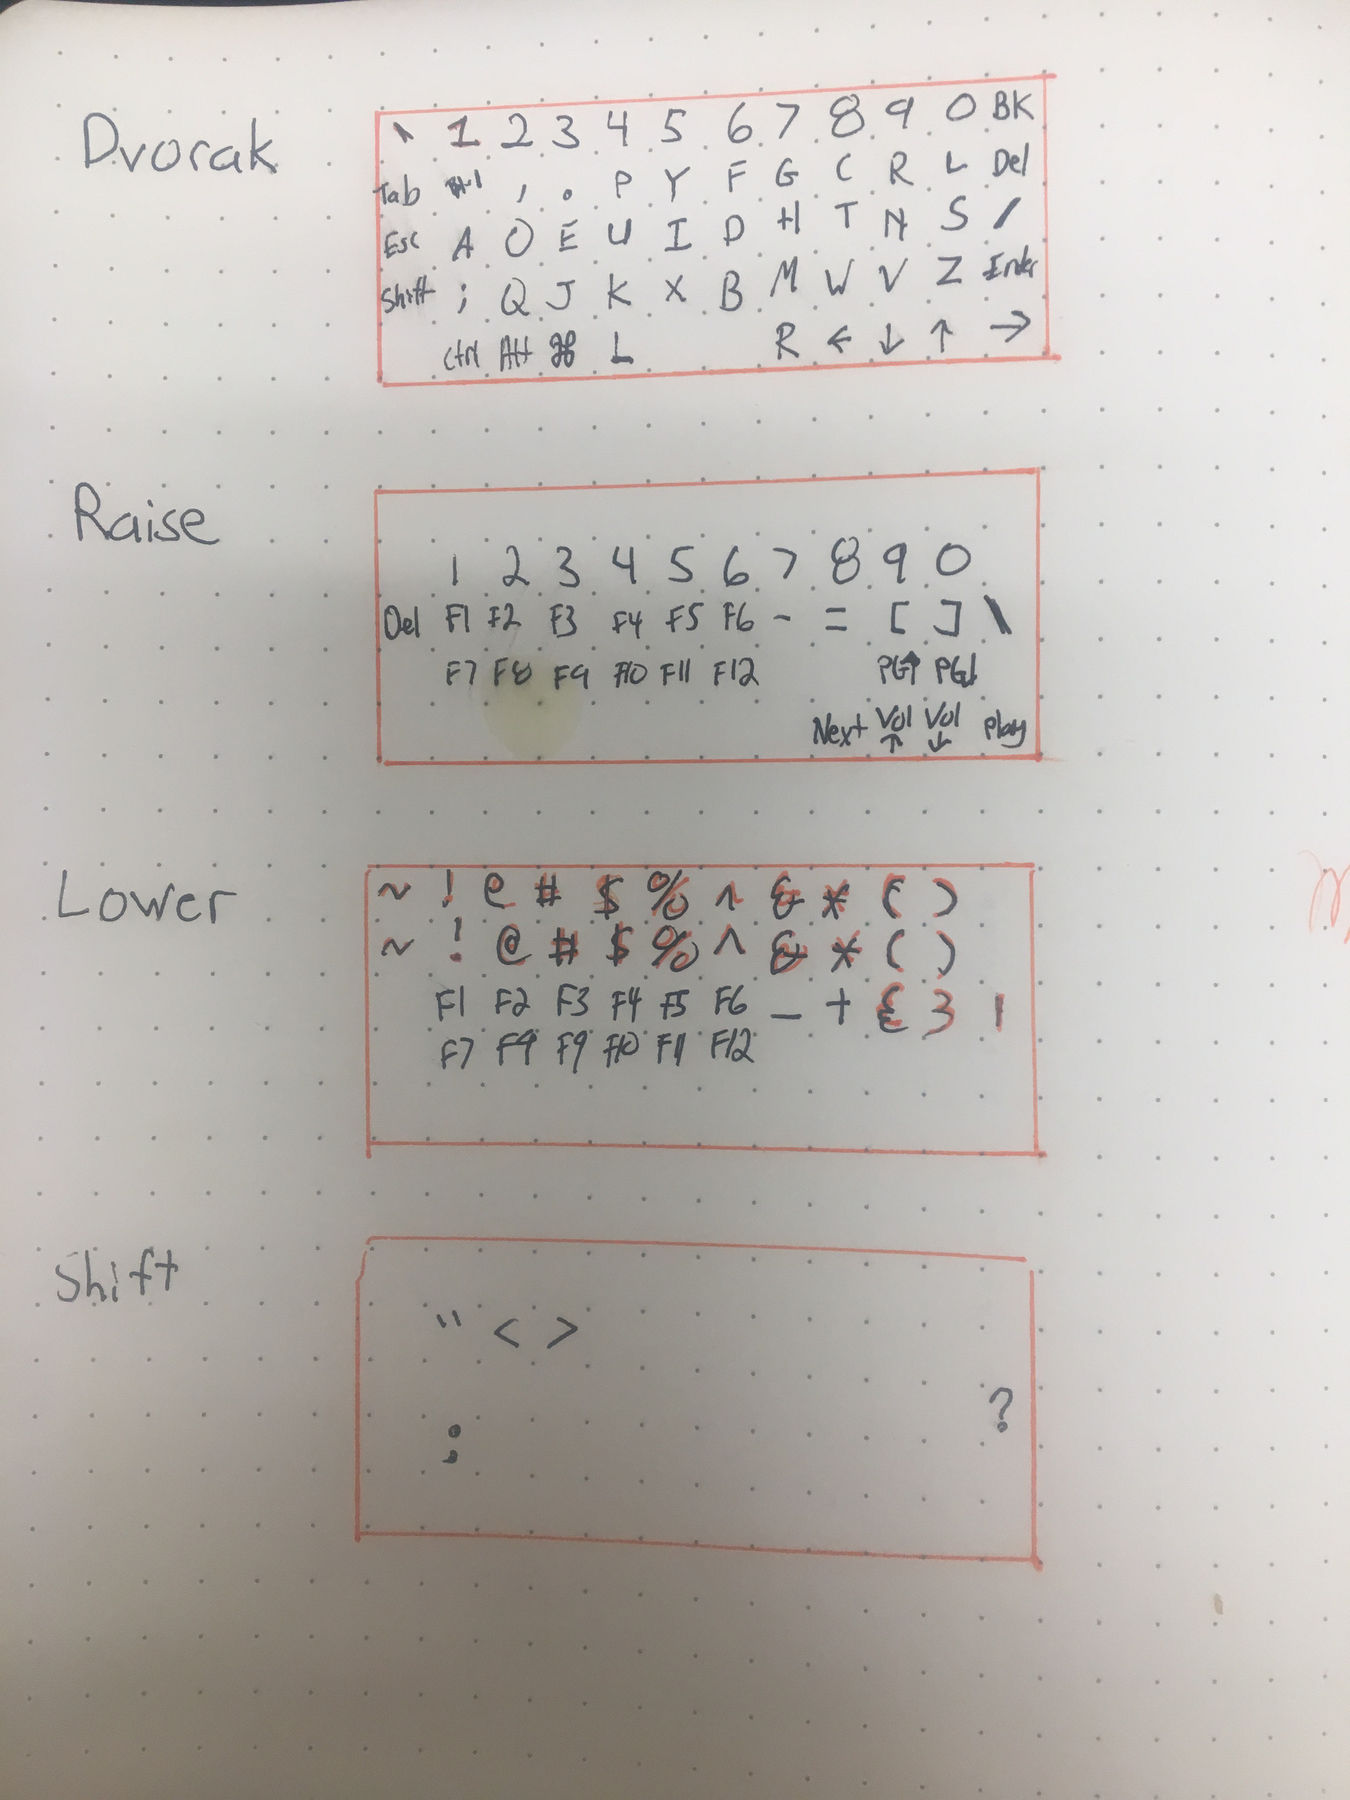 Dvorak
` 1 2 3 4 5 6 7 8 9 0 BK
Tab , . P Y F G C R L Del
Esc A O E U I D H T N S /
Shift ; Q J K X B M W V Z Enter
Ctrl Alt ⌘ L R ← ↓ ↑ →
Raise
1 2 3 4 5 6 7 8 9 0
Del F1 F2 F3 F4 F5 F6 - = [ ] \
F7 F8 F9 F10 F11 F12 PG↑ PG↓
Next Vol ↑ Vol ↓ Play
Lower
~ ! @ # $ % ^ & * ( )
~ ! @ # $ % ^ & * ( )
F1 F2 F3 F4 F5 F6 _ + { } |
F7 F9 F9 F10 F11 F12
Shift
" < >
?
;